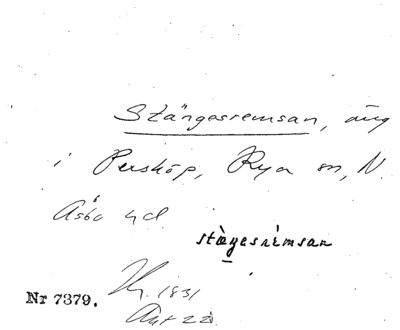 Stängesremsan, äng
i Perstorp, Rya sn, N.
Åsbo hd.
stæŋesrémsan
Nr 7379.
1831
Akt 22.